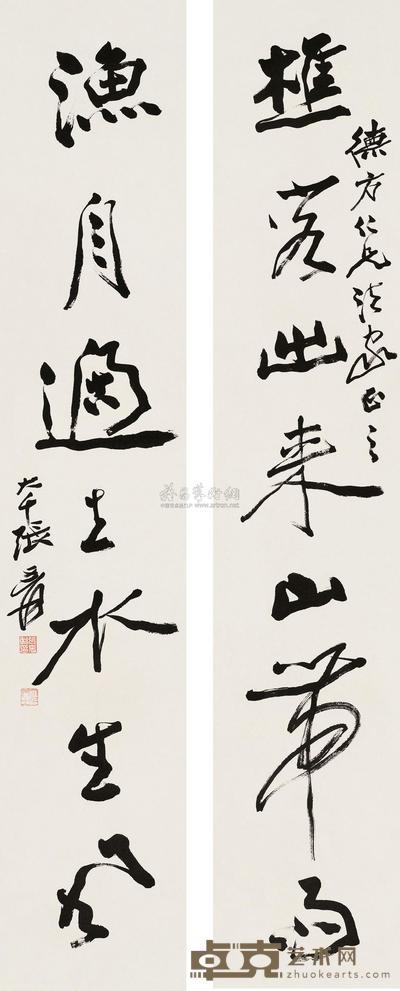 樵客出来山帶雨
德方仁兄法家正之
漁舟過去水生風
大千張爰
www.artron.net
卓克艺术网
zhuokearts.com